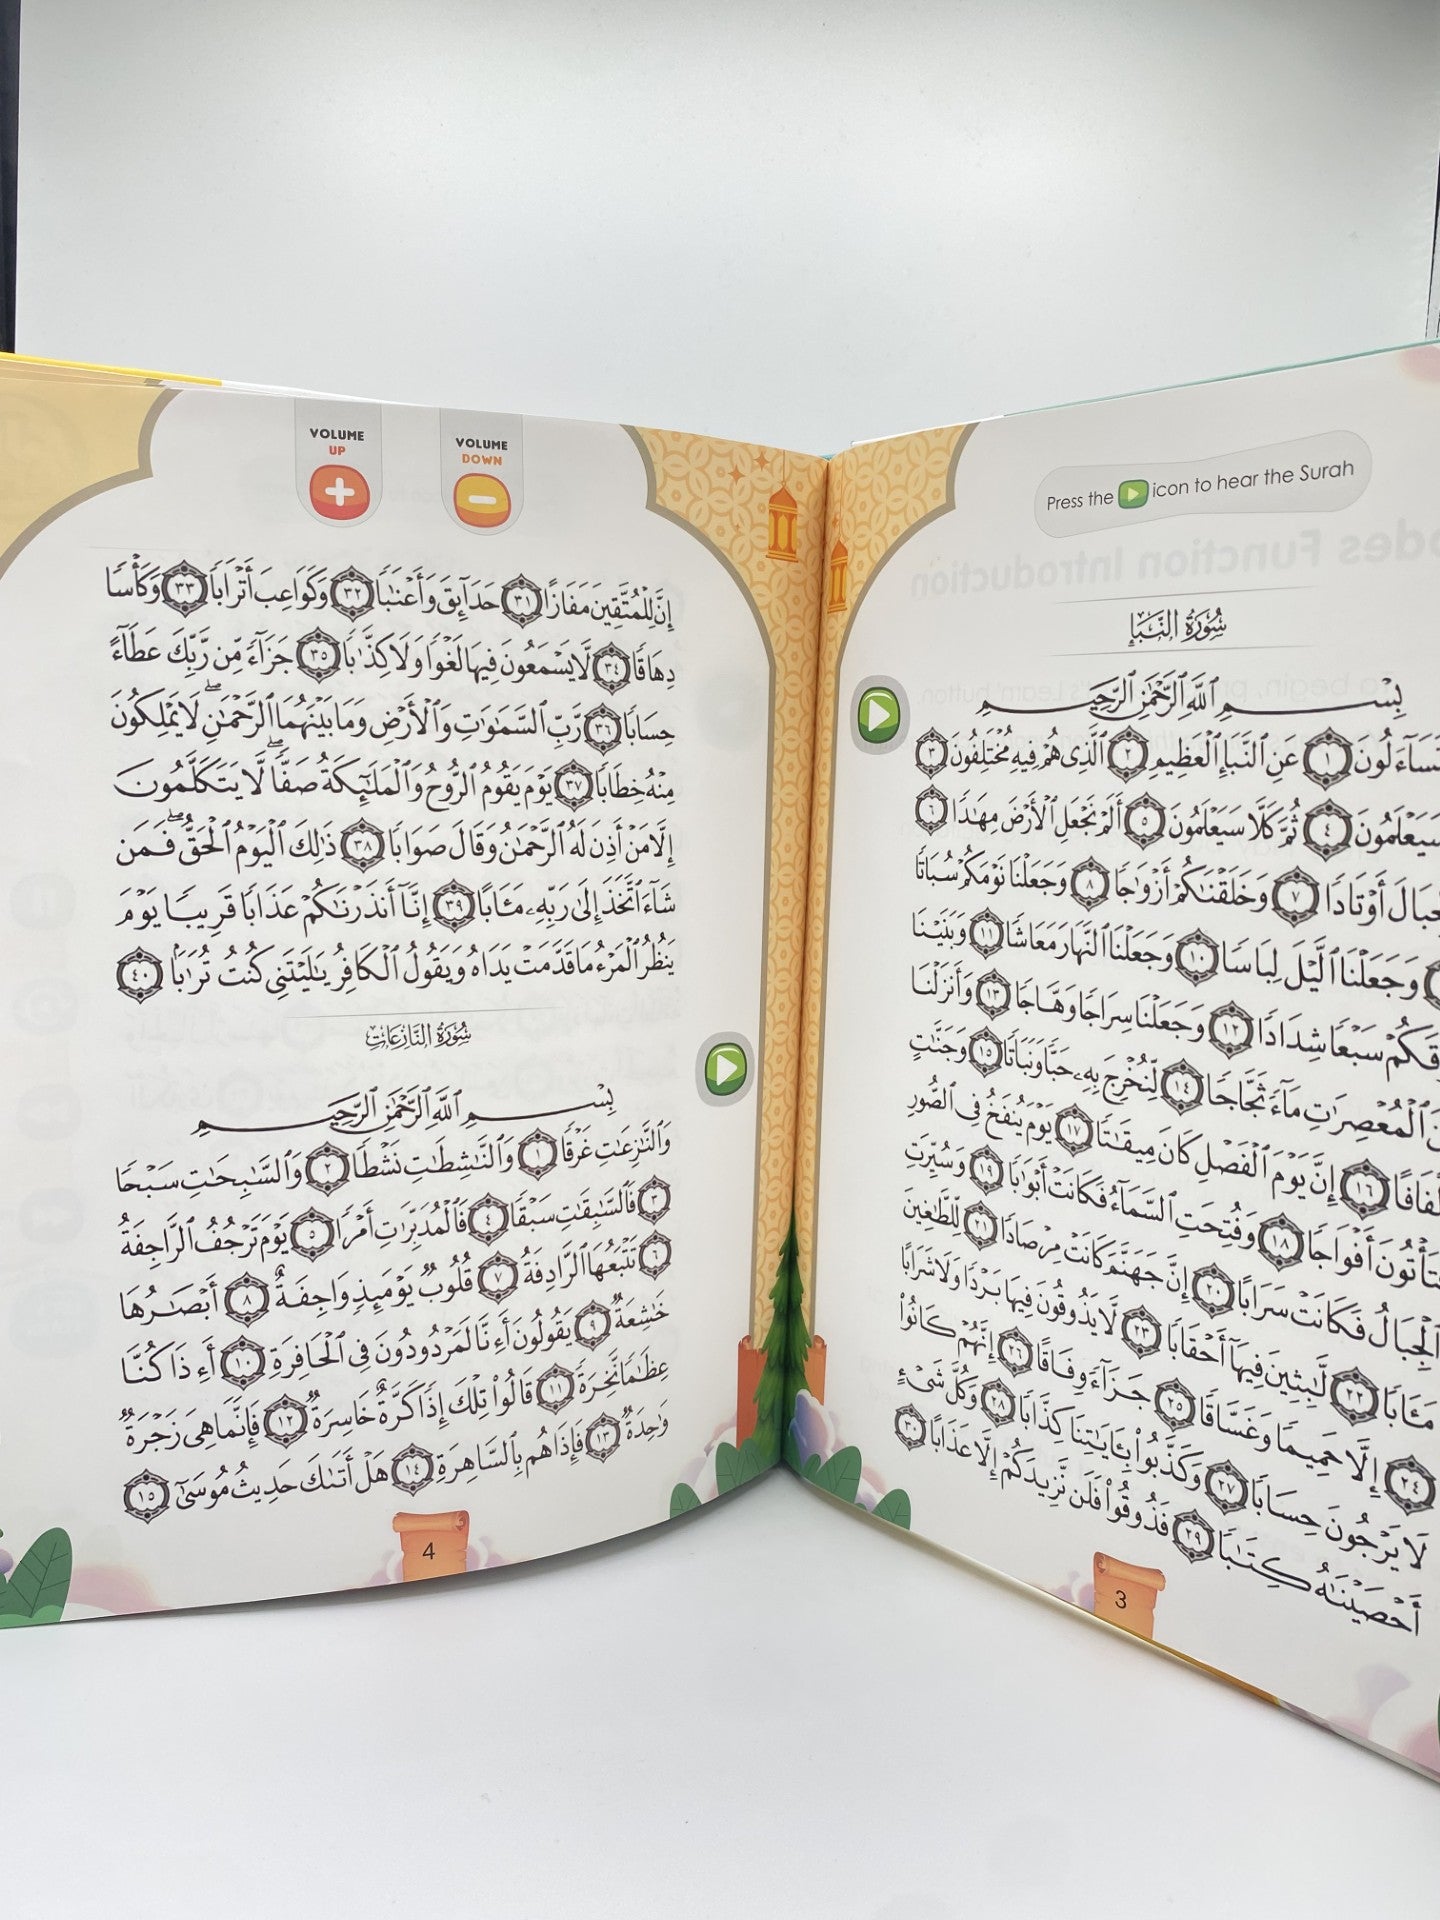 Press the icon to hear the Surah
سُورَةُ النَّبَإِ
بِسْمِ ٱللَّهِ ٱلرَّحْمَٰنِ ٱلرَّحِيمِ
١ عَنِ ٱلنَّبَإِ ٱلْعَظِيمِ ٢ ٱلَّذِى هُمْ فِيهِ مُخْتَلِفُونَ ٣
سَيَعْلَمُونَ ٤ ثُمَّ كَلَّا سَيَعْلَمُونَ ٥ أَلَمْ نَجْعَلِ ٱلْأَرْضَ مِهَٰدًا ٦
أَوْتَادًا ٧ وَخَلَقْنَٰكُمْ أَزْوَٰجًا ٨ وَجَعَلْنَا نَوْمَكُمْ سُبَاتًا
وَجَعَلْنَا ٱلَّيْلَ لِبَاسًا ١٠ وَجَعَلْنَا ٱلنَّهَارَ مَعَاشًا ١١ وَبَنَيْنَا
سَبْعًا شِدَادًا ١٢ وَجَعَلْنَا سِرَاجًا وَهَّاجًا ١٣ وَأَنزَلْنَا
ٱلْمُعْصِرَٰتِ مَآءً ثَجَّاجًا ١٤ لِّنُخْرِجَ بِهِۦ حَبًّا وَنَبَاتًا ١٥ وَجَنَّٰتٍ
١٦ إِنَّ يَوْمَ ٱلْفَصْلِ كَانَ مِيقَٰتًا ١٧ يَوْمَ يُنفَخُ فِى ٱلصُّورِ
أَفْوَاجًا ١٨ وَفُتِحَتِ ٱلسَّمَآءُ فَكَانَتْ أَبْوَٰبًا ١٩ وَسُيِّرَتِ
ٱلْجِبَالُ فَكَانَتْ سَرَابًا ٢٠ إِنَّ جَهَنَّمَ كَانَتْ مِرْصَادًا ٢١ لِّلطَّٰغِينَ
مَـَٔابًا ٢٢ لَّٰبِثِينَ فِيهَآ أَحْقَابًا ٢٣ لَّا يَذُوقُونَ فِيهَا بَرْدًا وَلَا شَرَابًا
٢٤ إِلَّا حَمِيمًا وَغَسَّاقًا ٢٥ جَزَآءً وِفَاقًا ٢٦ إِنَّهُمْ كَانُوا۟
لَا يَرْجُونَ حِسَابًا ٢٧ وَكَذَّبُوا۟ بِـَٔايَٰتِنَا كِذَّابًا ٢٨ وَكُلَّ شَىْءٍ
أَحْصَيْنَٰهُ كِتَٰبًا ٢٩ فَذُوقُوا۟ فَلَن نَّزِيدَكُمْ إِلَّا عَذَابًا ٣٠
3
VOLUME
UP
VOLUME
DOWN
إِنَّ لِلْمُتَّقِينَ مَفَازًا ٣١ حَدَآئِقَ وَأَعْنَٰبًا ٣٢ وَكَوَاعِبَ أَتْرَابًا ٣٣ وَكَأْسًا
دِهَاقًا ٣٤ لَّا يَسْمَعُونَ فِيهَا لَغْوًا وَلَا كِذَّٰبًا ٣٥ جَزَآءً مِّن رَّبِّكَ عَطَآءً
حِسَابًا ٣٦ رَّبِّ ٱلسَّمَٰوَٰتِ وَٱلْأَرْضِ وَمَا بَيْنَهُمَا ٱلرَّحْمَٰنِ ۖ لَا يَمْلِكُونَ
مِنْهُ خِطَابًا ٣٧ يَوْمَ يَقُومُ ٱلرُّوحُ وَٱلْمَلَٰٓئِكَةُ صَفًّا ۖ لَّا يَتَكَلَّمُونَ
إِلَّا مَنْ أَذِنَ لَهُ ٱلرَّحْمَٰنُ وَقَالَ صَوَابًا ٣٨ ذَٰلِكَ ٱلْيَوْمُ ٱلْحَقُّ ۖ فَمَن
شَآءَ ٱتَّخَذَ إِلَىٰ رَبِّهِۦ مَـَٔابًا ٣٩ إِنَّآ أَنذَرْنَٰكُمْ عَذَابًا قَرِيبًا يَوْمَ
يَنظُرُ ٱلْمَرْءُ مَا قَدَّمَتْ يَدَاهُ وَيَقُولُ ٱلْكَافِرُ يَٰلَيْتَنِى كُنتُ تُرَٰبًۢا ٤٠
سُورَةُ النَّازِعَاتِ
بِسْمِ ٱللَّهِ ٱلرَّحْمَٰنِ ٱلرَّحِيمِ
وَٱلنَّٰزِعَٰتِ غَرْقًا ١ وَٱلنَّٰشِطَٰتِ نَشْطًا ٢ وَٱلسَّٰبِحَٰتِ سَبْحًا
٣ فَٱلسَّٰبِقَٰتِ سَبْقًا ٤ فَٱلْمُدَبِّرَٰتِ أَمْرًا ٥ يَوْمَ تَرْجُفُ ٱلرَّاجِفَةُ
٦ تَتْبَعُهَا ٱلرَّادِفَةُ ٧ قُلُوبٌ يَوْمَئِذٍ وَاجِفَةٌ ٨ أَبْصَٰرُهَا
خَٰشِعَةٌ ٩ يَقُولُونَ أَءِنَّا لَمَرْدُودُونَ فِى ٱلْحَافِرَةِ ١٠ أَءِذَا كُنَّا
عِظَٰمًا نَّخِرَةً ١١ قَالُوا۟ تِلْكَ إِذًا كَرَّةٌ خَاسِرَةٌ ١٢ فَإِنَّمَا هِىَ زَجْرَةٌ
وَٰحِدَةٌ ١٣ فَإِذَا هُم بِٱلسَّاهِرَةِ ١٤ هَلْ أَتَىٰكَ حَدِيثُ مُوسَىٰٓ ١٥
4